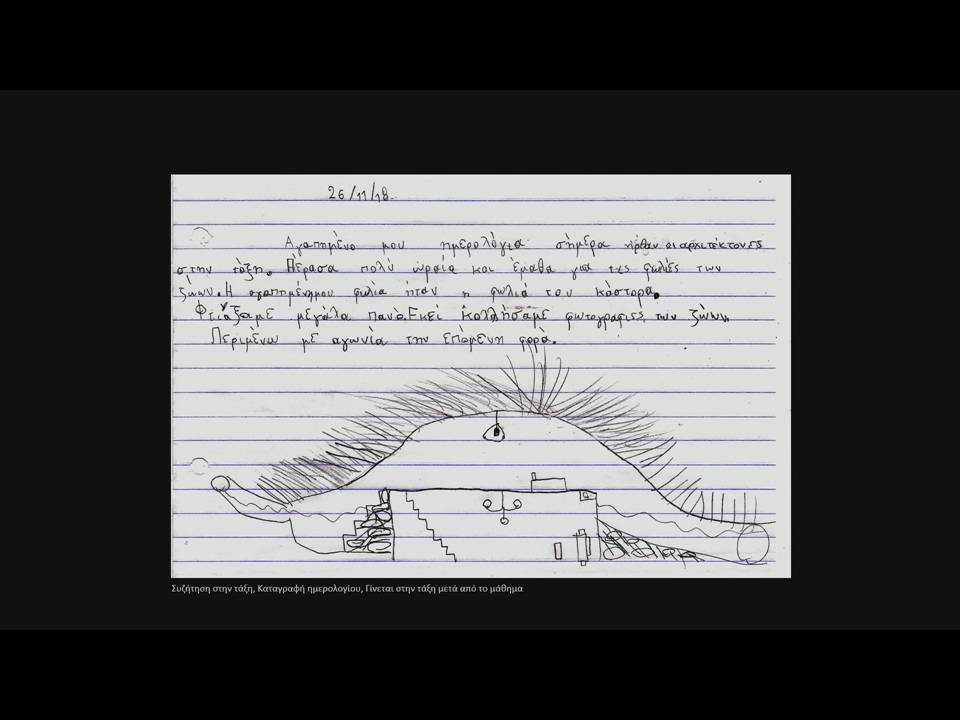 26/11/18
Αγαπημένο μου ημερολόγιο σήμερα ήρθαν οι αρχιτέκτονες
στην τάξη. Πέρασα πολύ ωραία και έμαθα για τις φωλιές των
ζώων. Η αγαπημένημου φωλιά ήταν η φωλιά του κάστορα.
Φτιάξαμε μεγάλα πανό. Εκεί κολλήσαμε φωτογραφίες των ζώων.
Περιμένω με αγωνία την επόμενη φορά.
Συζήτηση στην τάξη, Καταγραφή ημερολογίου, Γίνεται στην τάξη μετά από το μάθημα